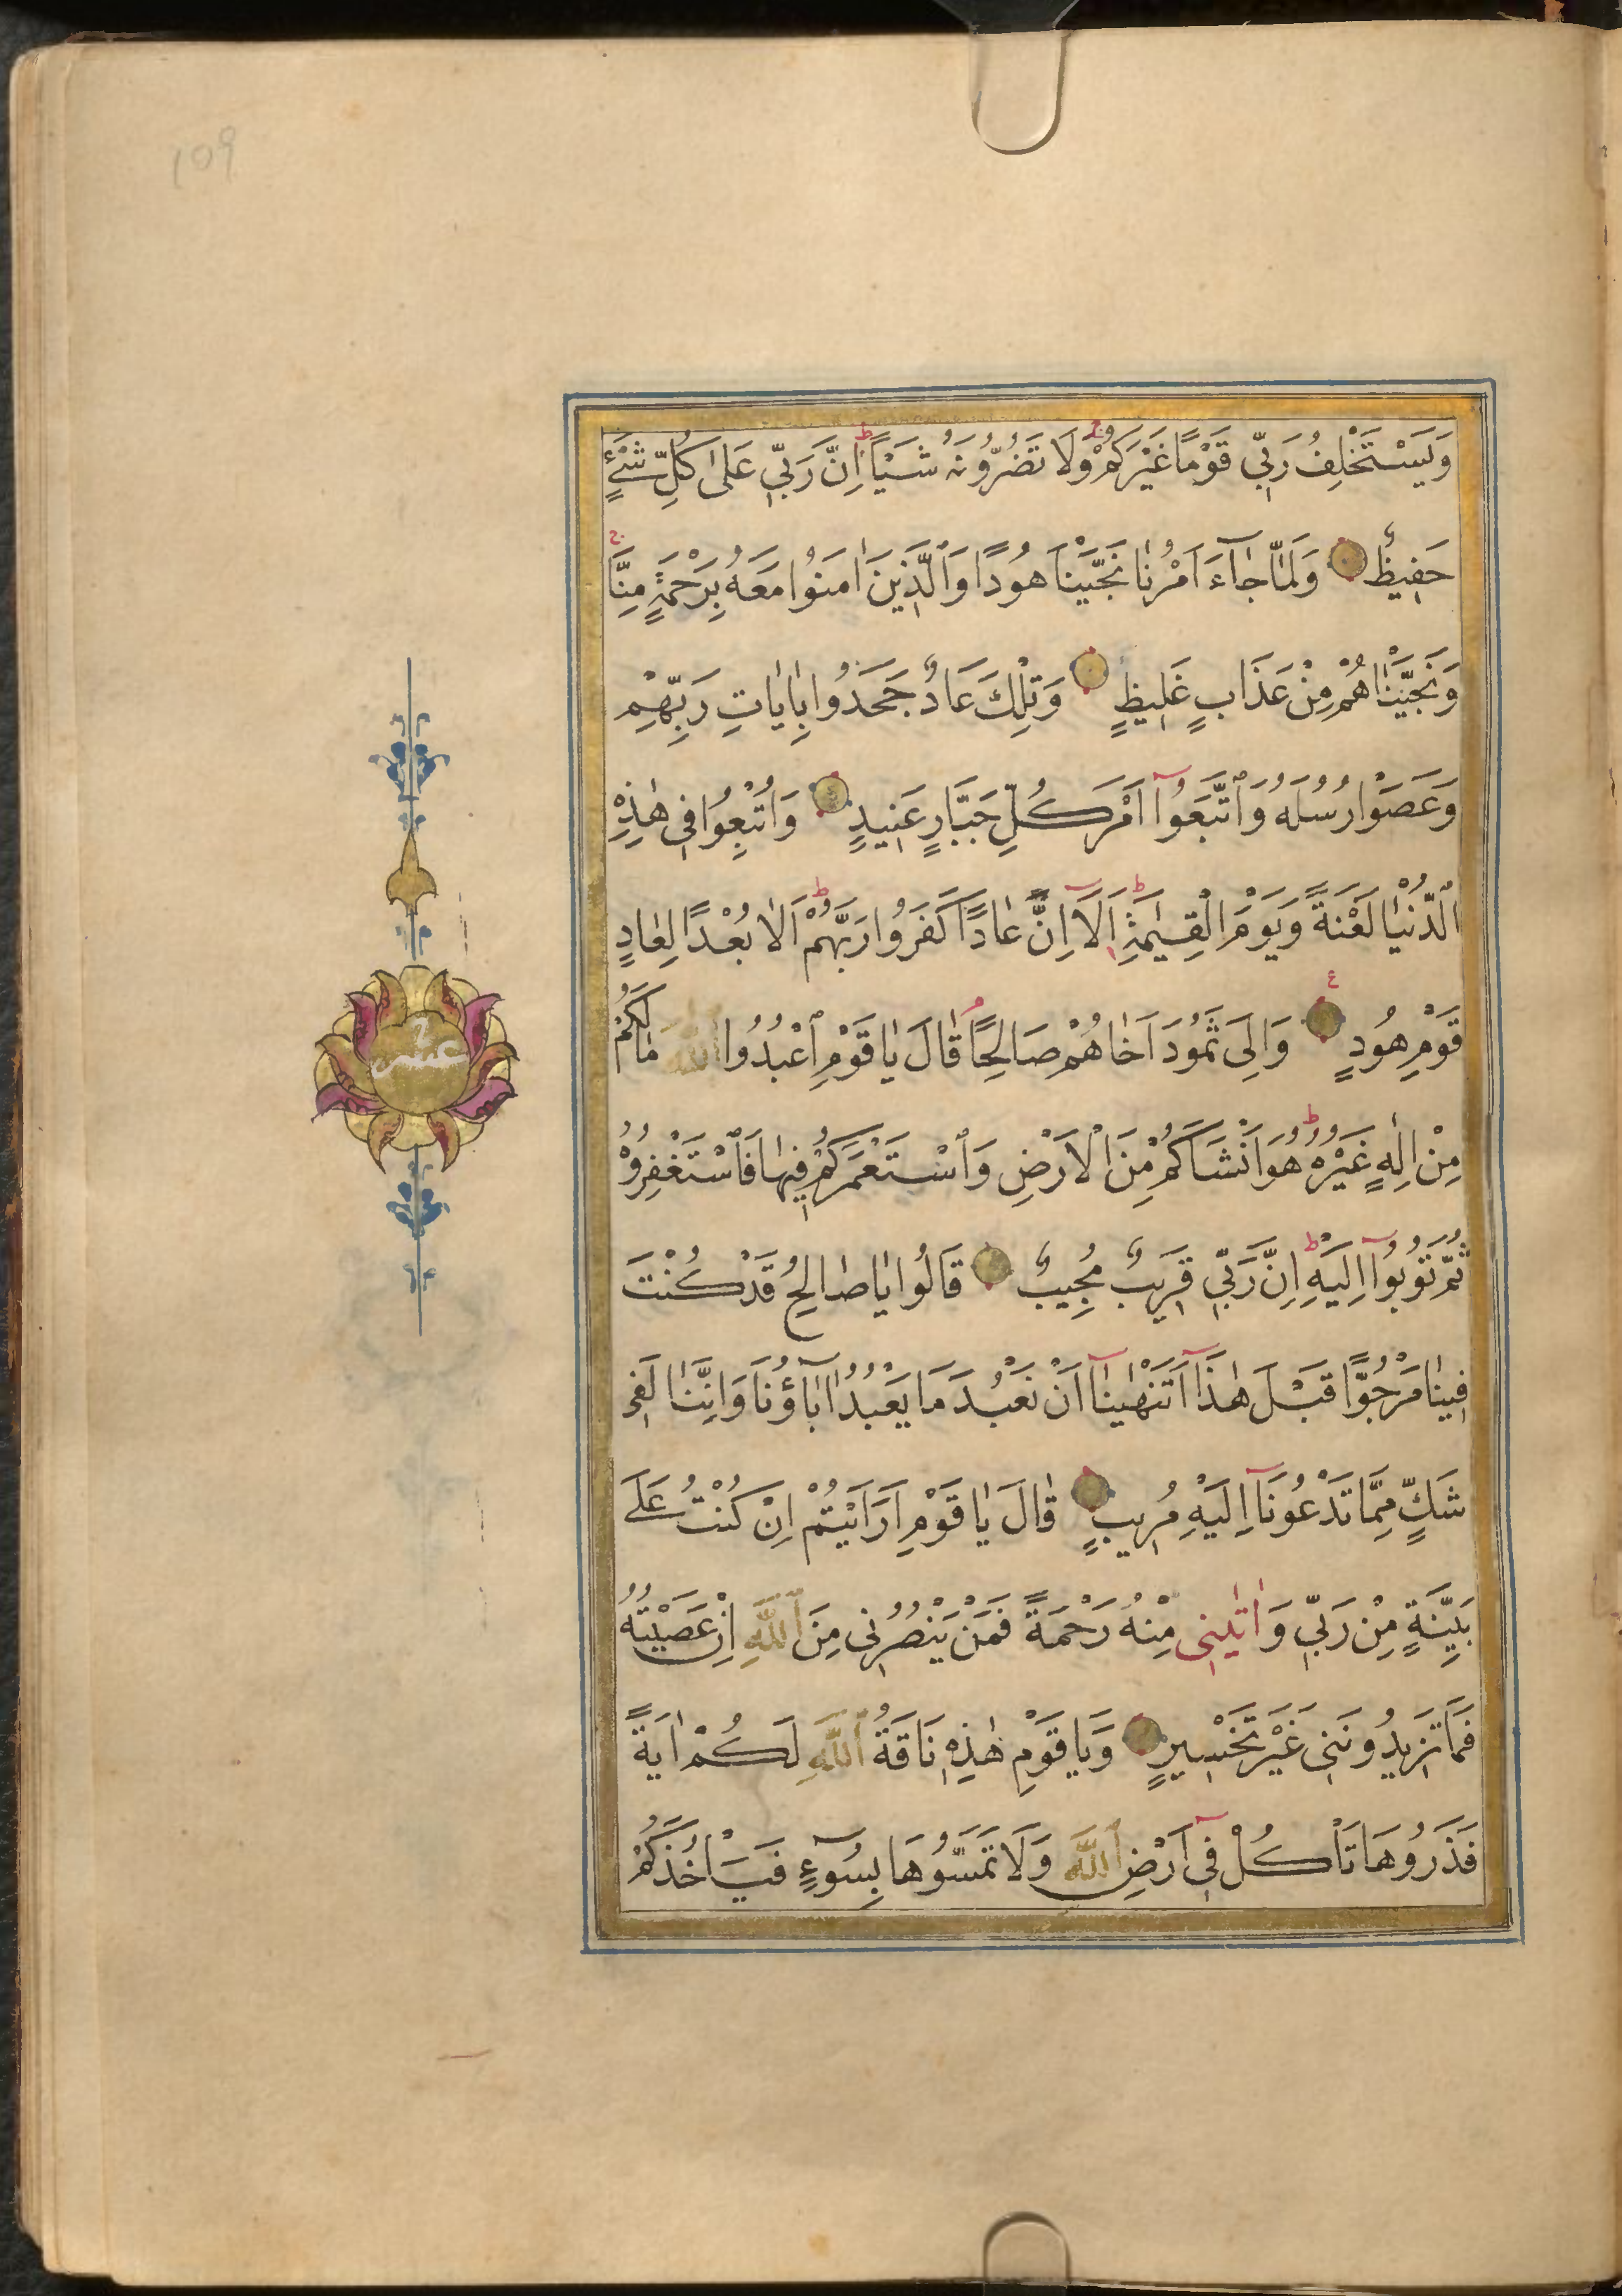 109
وَيَسْتَخْلِفُ رَبِّي قَوْمًا غَيْرَكُمْ وَلَا تَضُرُّونَهُ شَيْئًا اِنَّ رَبِّي عَلٰى كُلِّ شَيْءٍ
حَفِيظٌ وَلَمَّا جَآءَ اَمْرُنَا نَجَّيْنَا هُودًا وَالَّذِينَ اٰمَنُوا مَعَهُ بِرَحْمَةٍ مِنَّا
وَنَجَّيْنَاهُمْ مِنْ عَذَابٍ غَلِيظٍ وَتِلْكَ عَادٌ جَحَدُوا بِاٰيَاتِ رَبِّهِمْ
وَعَصَوْا رُسُلَهُ وَاتَّبَعُوٓا اَمْرَ كُلِّ جَبَّارٍ عَنِيدٍ وَاُتْبِعُوا فِي هٰذِهِ
الدُّنْيَا لَعْنَةً وَيَوْمَ الْقِيٰمَةِ اَلَآ اِنَّ عَادًا كَفَرُوا رَبَّهُمْ اَلَا بُعْدًا لِعَادٍ
قَوْمِ هُودٍ وَاِلٰى ثَمُودَ اَخَاهُمْ صَالِحًا قَالَ يَا قَوْمِ اعْبُدُوا اللّٰهَ مَا لَكُمْ
مِنْ اِلٰهٍ غَيْرُهُ هُوَ اَنْشَاَكُمْ مِنَ الْاَرْضِ وَاسْتَعْمَرَكُمْ فِيهَا فَاسْتَغْفِرُوهُ
ثُمَّ تُوبُوٓا اِلَيْهِ اِنَّ رَبِّي قَرِيبٌ مُجِيبٌ قَالُوا يَا صَالِحُ قَدْ كُنْتَ
فِينَا مَرْجُوًّا قَبْلَ هٰذَآ اَتَنْهٰينَآ اَنْ نَعْبُدَ مَا يَعْبُدُ اٰبَآؤُنَا وَاِنَّنَا لَفِي
شَكٍّ مِمَّا تَدْعُونَآ اِلَيْهِ مُرِيبٍ قَالَ يَا قَوْمِ اَرَاَيْتُمْ اِنْ كُنْتُ عَلٰى
بَيِّنَةٍ مِنْ رَبِّي وَاٰتٰينِي مِنْهُ رَحْمَةً فَمَنْ يَنْصُرُنِي مِنَ اللّٰهِ اِنْ عَصَيْتُهُ
فَمَا تَزِيدُونَنِي غَيْرَ تَخْسِيرٍ وَيَا قَوْمِ هٰذِهِ نَاقَةُ اللّٰهِ لَكُمْ اٰيَةً
فَذَرُوهَا تَاْكُلْ فِيٓ اَرْضِ اللّٰهِ وَلَا تَمَسُّوهَا بِسُوٓءٍ فَيَاْخُذَكُمْ
عشر